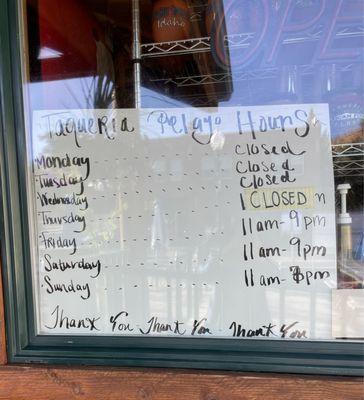 Idaho
OPE
Taqueria Pelayo Hours
Monday closed
Tuesday closed
Wednesday closed
Thursday CLOSED
Friday 11am-9pm
Saturday 11am-9pm
Sunday 11am-8pm
Thank You Thank You Thank You